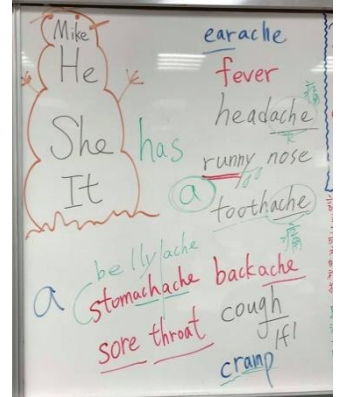 Mike
He
She
It
has
a
earache
fever
headache
痛
runny nose
toothache
痛
belly ache
a
stomachache backache
sore throat cough
|f|
cramp